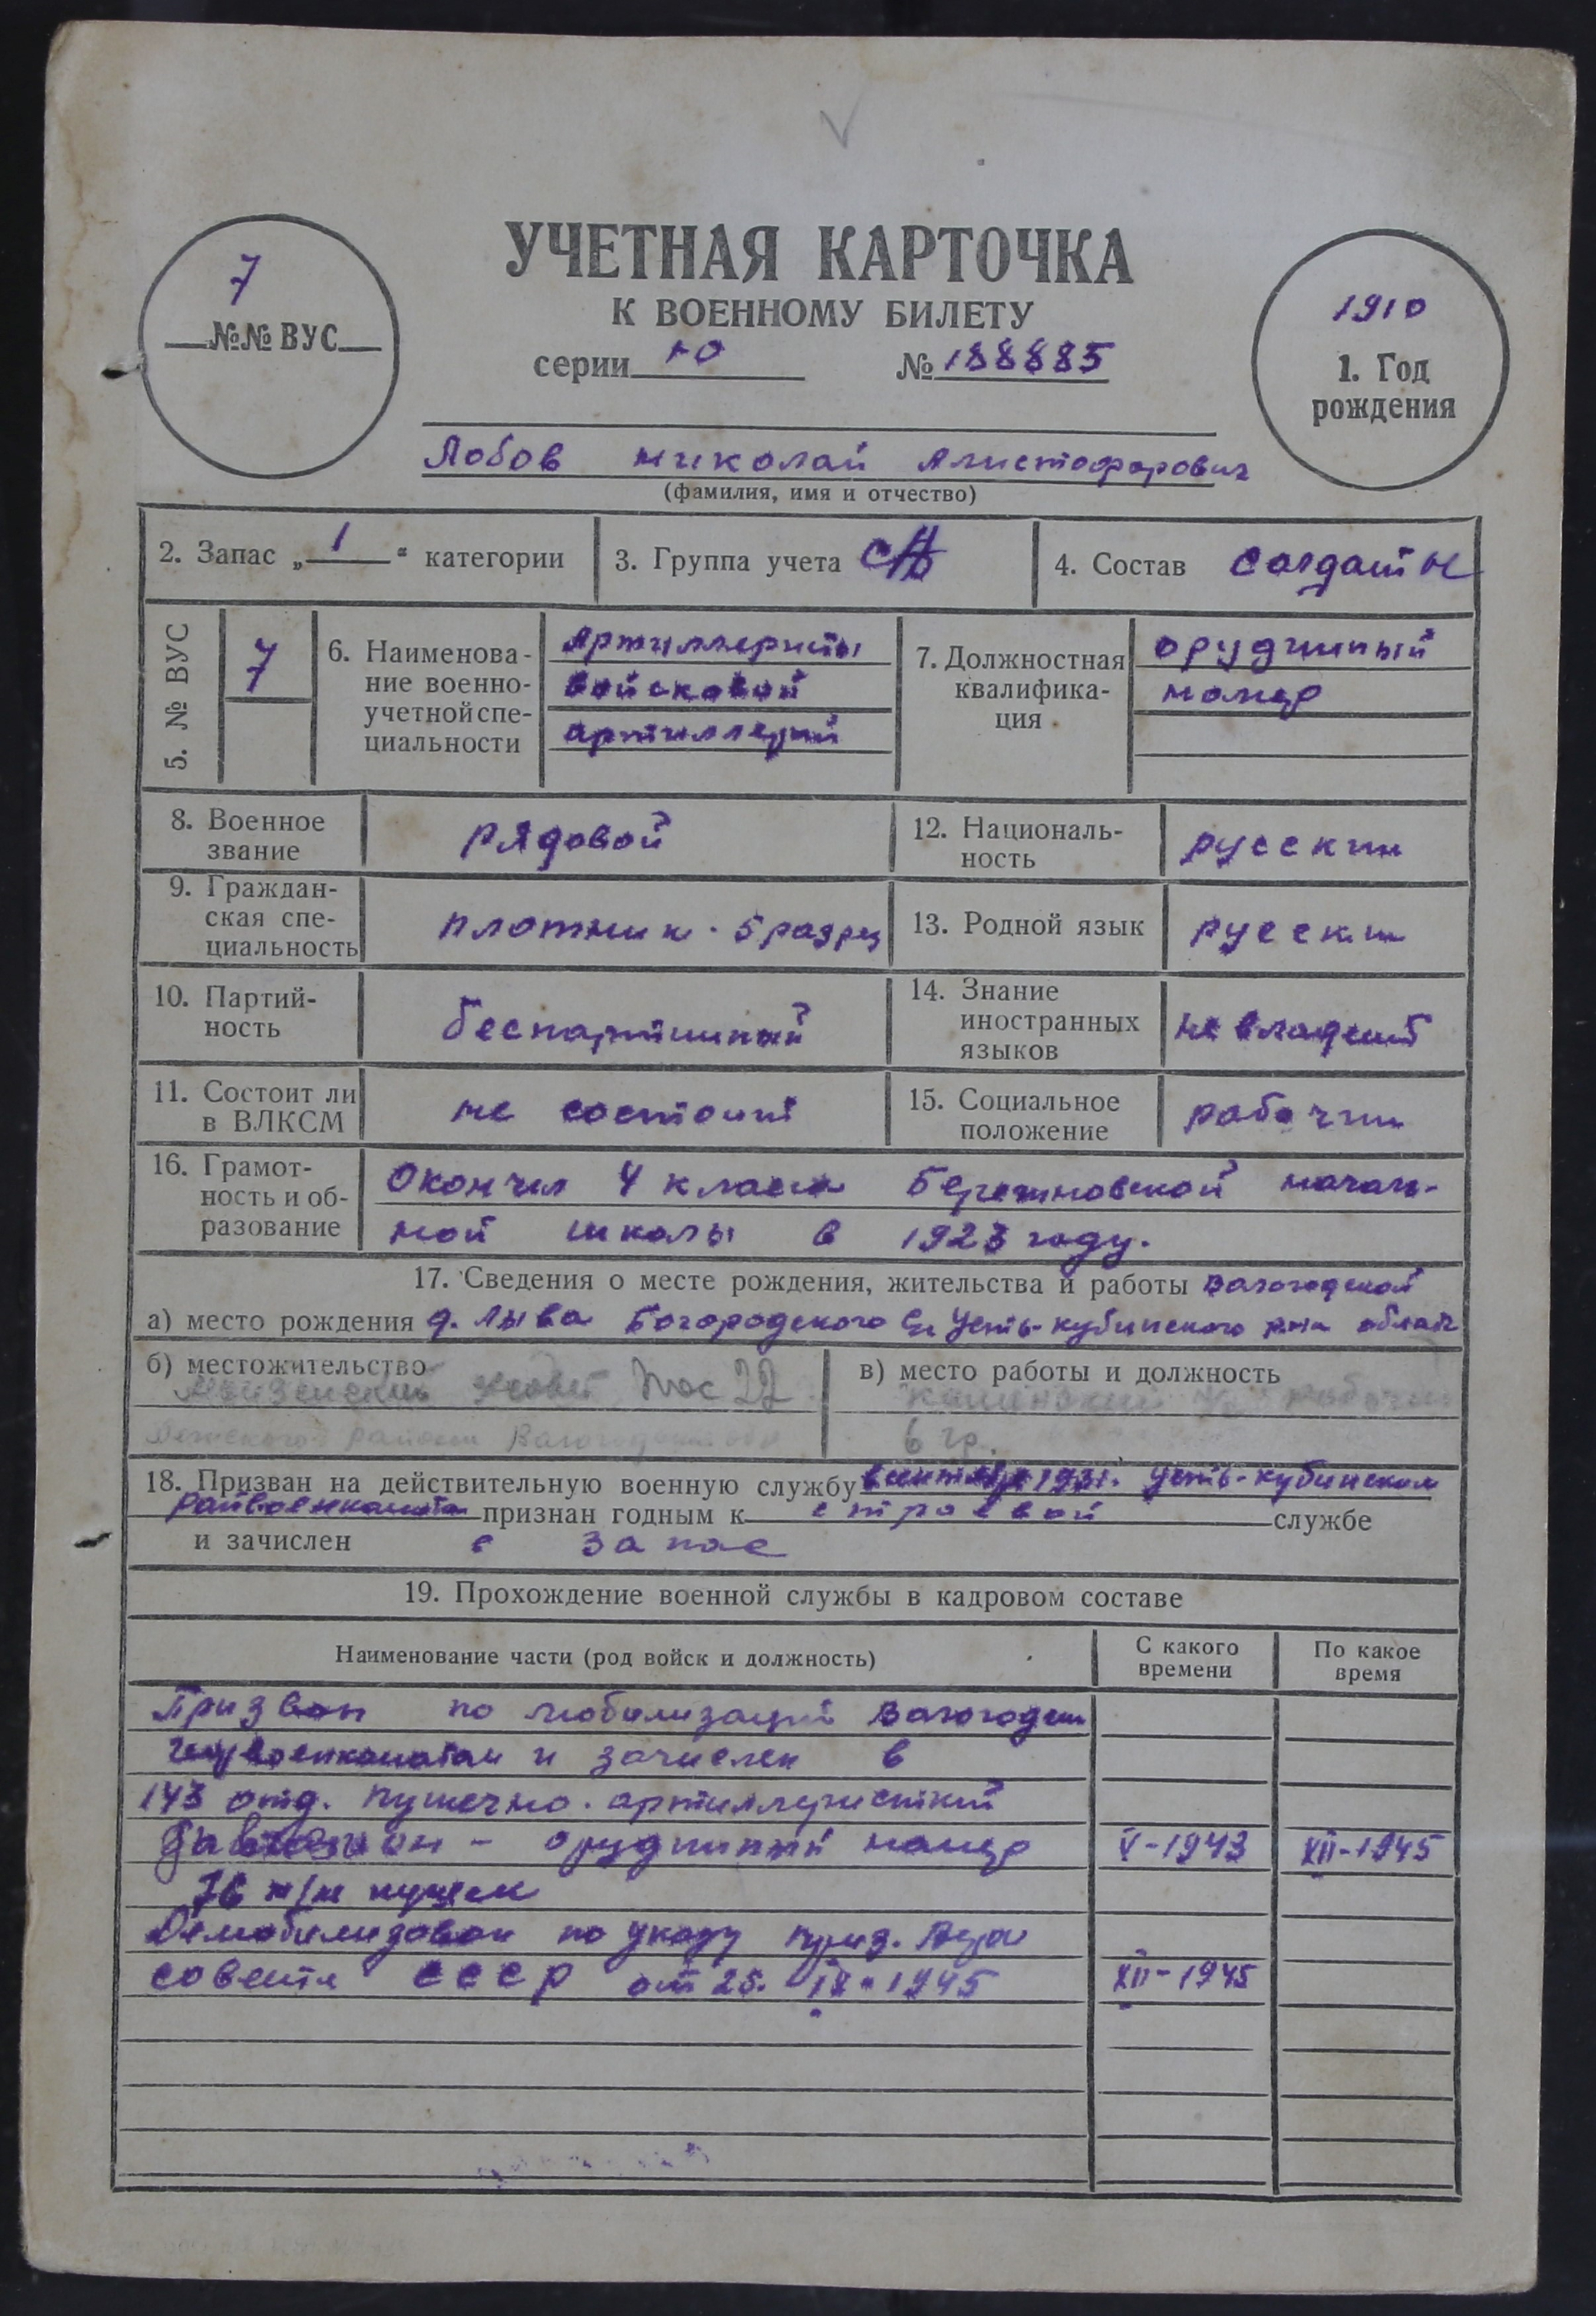 УЧЕТНАЯ КАРТОЧКА
К ВОЕННОМУ БИЛЕТУ
серии Ю № 188885
7
№№ ВУС
1910
1. Год
рождения
Лобов Николай Алистофорович
(фамилия, имя и отчество)
2. Запас „1“ категории
3. Группа учета СА
4. Состав Солдаты
5. № ВУС 7
6. Наименова-
ние военно-
учетной спе-
циальности
Артиллеристы
войсковой
артиллерий
7. Должностная
квалифика-
ция
орудийный
номер
8. Военное
звание
рядовой
12. Националь-
ность
русский
9. Граждан-
ская спе-
циальность
плотник. 5 разряд
13. Родной язык русский
10. Партий-
ность
беспартийный
14. Знание
иностранных
языков
не владеет
11. Состоит ли
в ВЛКСМ
не состоит
15. Социальное
положение
рабочий
16. Грамот-
ность и об-
разование
Окончил 4 класса Бережновской началь-
ной школы в 1923 году.
17. Сведения о месте рождения, жительства и работы Вологодской
а) место рождения д. Лыва Богородского с/с Усть-Кубинского р-на област
б) местожительство
пос 22
района Вологодской обл
в) место работы и должность
рабочий
6 гр.
18. Призван на действительную военную службу в сентябре 1931. Усть-Кубинским
райвоенкоматом признан годным к строевой службе
и зачислен в запас
19. Прохождение военной службы в кадровом составе
Наименование части (род войск и должность)
С какого
времени
По какое
время
Призван по мобилизаций Вологодским
горвоенкоматом и зачислен в
143 отд. пушечно. артиллеристкий
дивизион - орудийный номер V-1943 XII-1945
76 м/м пушек
Демобилизован по указу През. Верх
совета СССР от 25. IX-1945 XII-1945